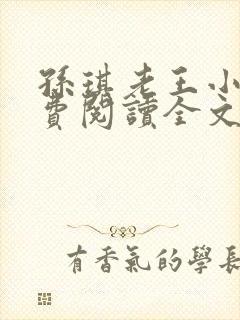 孫琪老王小
費閱讀全文
有香氣的學長